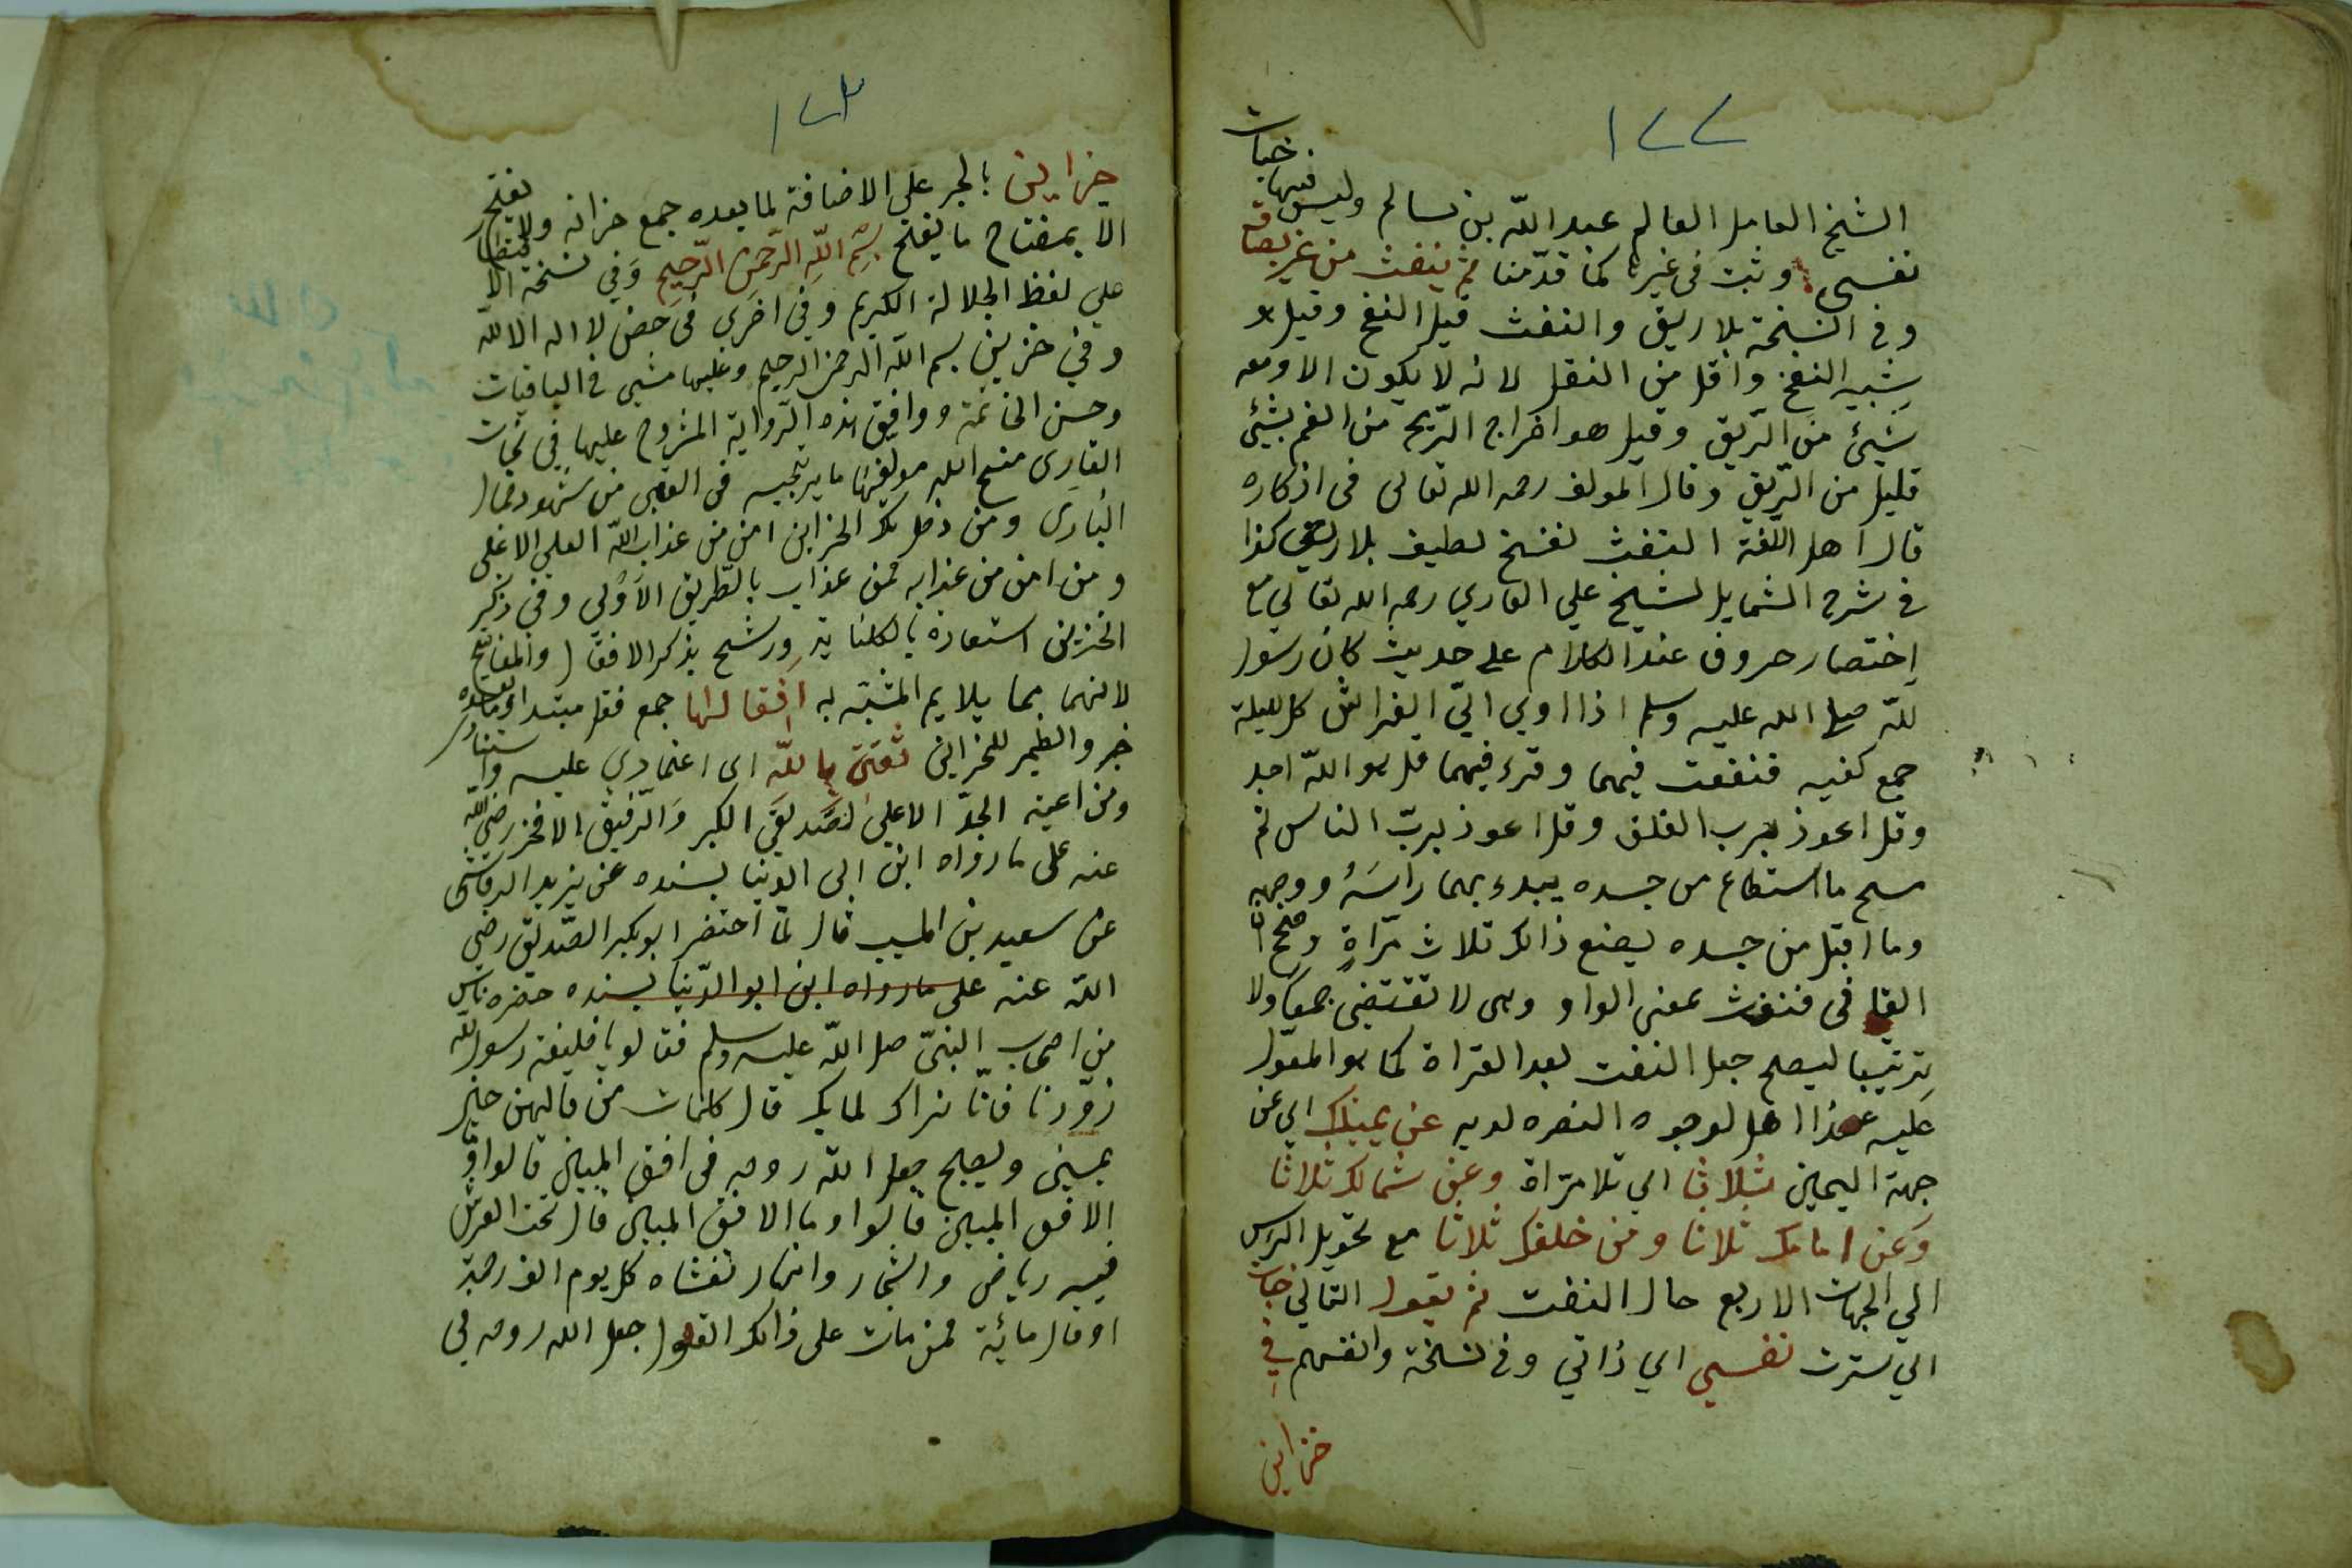 ١٢٢
الشيخ العامل العالم عبد الله بن سالم وليس فيها خبات
نفسي وثبت في غيرها كما قدّمنا ثم ينفث من غير بصاق
وفي النسخة بلا ريق والنفث قيل النفخ وقيل هو
شبيه النفخ واقل من التفل لانه لا يكون الا ومعه
شيئ من الرّيق وقيل هو اخراج الرّيح من الفم بشيئ
قليل من الرّيق وقال المولف رحمه الله تعالى في اذكاره
قال اهل اللّغة النفث نفخ لطيف بلا ريق كذا
في شرح الشمايل لشيخ علي القاري رحمه الله تعالي مع
اختصار حروف عند الكلام على حديث كان رسول
لله صلى الله عليه وسلم اذا اوي الي الفراش كل ليلة
جمع كفيه فنفث فيهما وقرء فيهما قل هو الله احد
وقل اعوذ برب الفلق وقل اعوذ بربّ الناس ثم
مسح ما استطاع من جسده يبدء بهما راسه ووجهه
وما اقبل من جسده يصنع ذالك ثلاث مرّاة وصح ان
الفا في فنفث بمعنى الواو وهى لا تقتضى جمعا ولا
ترتيبا ليصح جعل النفث بعد القراة كما هو المعوّل
عليه عند اهل لوجوه النضره لديه عن يمينك اي عن
جهة اليمين ثلاثا اي ثلا مرّاة وعن شمالك ثلاثا
وعن امامك ثلاثا ومن خلفك ثلاثا مع تحويل الرس
الي الجهات الاربع حال النفث ثم يقول التالي خبات
اي سترت نفسي اي ذاتي وفي نسخة وانفسهم في
خزاين
١٢٣
خزاين بالجر على الاضافة لما بعده جمع خزانه ولا يفتح
الا بمفتاح ما يفتح بسم الله الرّحمن الرّحيم وفي نسخة الا
على لفظ الجلالة الكريم وفي اخرى في حصن لا اله الا الله
وفي خزين بسم الله الرحمن الرحيم وعليها مشي في الباقيات
وحسن الخاتمة ووافق هذه الرّواية المشروح عليها في
القارى منح الله مولفها ما يرتجيه في العقبى من شهود جمال
البارى ومن دخل تلك الخزاين امن من عذاب الله العلي الاعلى
ومن امن من عذابه فمن عذاب بالطّريق الاولي وفي ذكر
الخزين استعارة بالكناية ورشح بذكر الاقفال والمفاتيح
لانهما بما يلايم المشبّه به اقفالها جمع قفل مبتدا وما بعده
خبر والضمير للخزاين ثقتى بالله اى اعتمادي عليه
ومن اعينه الجدّ الاعلى الصّديق الكبر والرّفيق الافخر رضي الله
عنه على ما رواه ابن ابى الدنيا بسنده عن يزيد الرقاشى
عن سعيد بن المسيب قال لمّا احتضر ابو بكر الصّديق رضي
الله عنه على ما رواه ابن ابو الدّنيا بسنده حضره ناس
من اصحاب النبىّ صل الله عليه وسلم فقالو يا خليفة رسول الله
زوّدنا فانّا نراك لما بك قال كلمات من قالهن حين
يمسي ويصبح جعل الله روحه في افق المبين قالوا وما
الافق المبين قالوا وما الافق المبين قال تحت العرش
فيه رياض واشجار وانهار تغشاه كل يوم الف رحمة
او قال مائية فمن مات على ذالك القول جعل الله روحه في